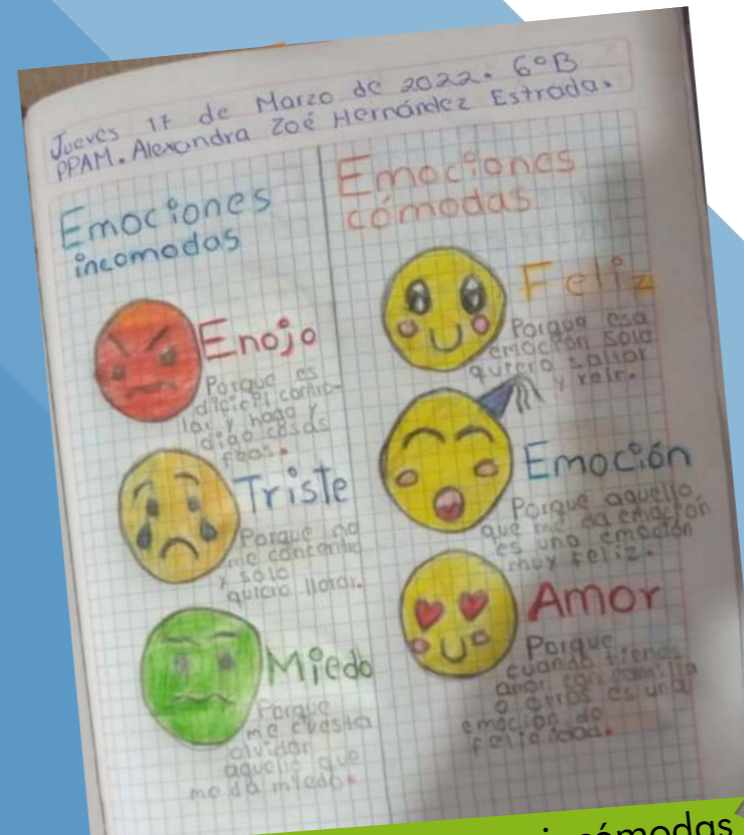 Jueves 17 de Marzo de 2022. 6°B
PPAM. Alexandra Zoé Hernández Estrada.
Emociones
incomodas
Enojo
Porque es
dificil contro-
lar y hago y
digo cosas
feas.
Triste
Porque no
me concentro
y solo
quiero llorar.
Miedo
Porque
me cuesta
olvidar
aquello que
me da miedo.
Emociones
cómodas
Feliz
Porque esa
emoción solo
quiero saltar
y reir.
Emoción
Porque aquello
que me da emoción
es una emoción
muy feliz.
Amor
Porque
cuando tienes
amor con familia
o otros es una
emoción de
felicidad.
incómodas